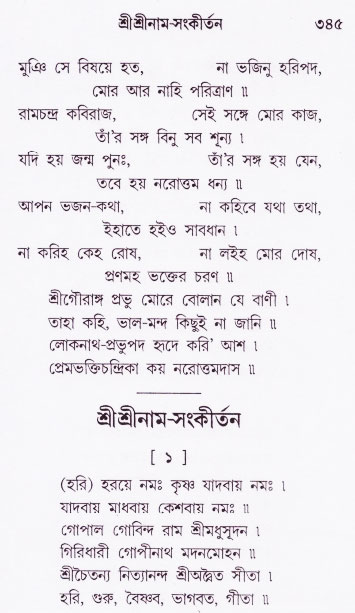 শ্রীশ্রীনাম-সংকীর্তন ৩৪৫
মুঞি সে বিষয়ে হত, না ভজিনু হরিপদ,
মোর আর নাহি পরিত্রাণ ॥
রামচন্দ্র কবিরাজ, সেই সঙ্গে মোর কাজ,
তাঁ'র সঙ্গ বিনু সব শূন্য ।
যদি হয় জন্ম পুনঃ, তাঁ'র সঙ্গ হয় যেন,
তবে হয় নরোত্তম ধন্য ॥
আপন ভজন-কথা, না কহিবে যথা তথা,
ইহাতে হইও সাবধান ।
না করিহ কেহ রোষ, না লইহ মোর দোষ,
প্রণমহ ভক্তের চরণ ॥
শ্রীগৌরাঙ্গ প্রভু মোরে বোলান যে বাণী ।
তাহা কহি, ভাল-মন্দ কিছুই না জানি ॥
লোকনাথ-প্রভুপদ হৃদে করি' আশ ।
প্রেমভক্তিচন্দ্রিকা কয় নরোত্তমদাস ॥
শ্রীশ্রীনাম-সংকীর্তন
[ ১ ]
(হরি) হরয়ে নমঃ কৃষ্ণ যাদবায় নমঃ ।
যাদবায় মাধবায় কেশবায় নমঃ ॥
গোপাল গোবিন্দ রাম শ্রীমধুসূদন ।
গিরিধারী গোপীনাথ মদনমোহন ॥
শ্রীচৈতন্য নিত্যানন্দ শ্রীঅদ্বৈত সীতা ।
হরি, গুরু, বৈষ্ণব, ভাগবত, গীতা ॥